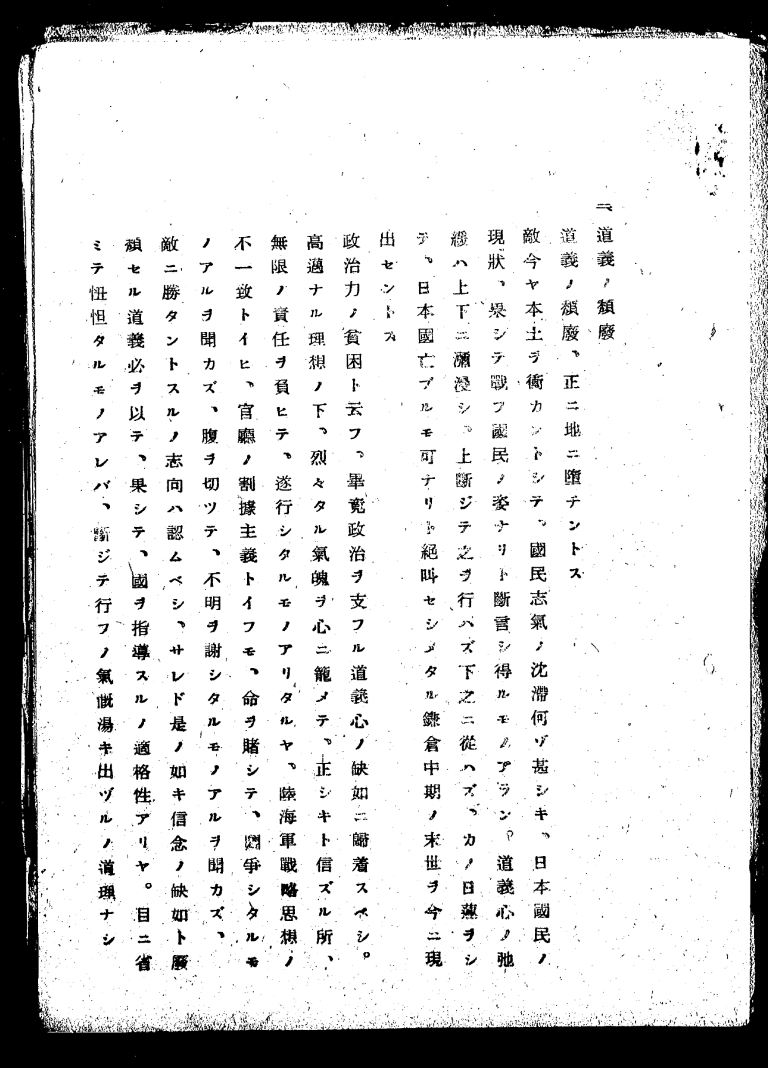 二、道義ノ頽廢
道義ノ頽廢、正ニ地ニ墮チントス
敵今ヤ本土ヲ衝カントシテ、國民志氣ノ沈滯何ゾ甚シキ、日本國民ノ
現狀、果シテ戰フ國民ノ姿ナリト斷言シ得ルモノアラン。道義心ノ弛
緩ハ上下ニ瀰浸シ、上斷ジテ之ヲ行ハズ下之ニ從ハズ、カノ日蓮ヲシ
テ、日本國亡ブルモ可ナリト絕叫セシメタル鎌倉中期ノ末世ヲ今ニ現
出セントス
政治力ノ貧困ト云フ、畢竟政治ヲ支フル道義心ノ缺如ニ歸着スベシ。
高邁ナル理想ノ下、烈々タル氣魄ヲ心ニ籠メテ、正シキト信ズル所、
無限ノ責任ヲ負ヒテ、遂行シタルモノアリタルヤ、陸海軍戰略思想ノ
不一致トイヒ、官廳ノ割據主義トイフモ、命ヲ賭シテ、鬪爭シタルモ
ノアルヲ聞カズ、腹ヲ切ツテ、不明ヲ謝シタルモノアルヲ聞カズ、
敵ニ勝タントスルノ志向ハ認ムベシ、サレド是ノ如キ信念ノ缺如ト廢
頽セル道義必ヲ以テ、果シテ、國ヲ指導スルノ適格性アリヤ。自ニ省
ミテ忸怛タルモノアレバ、斷ジテ行フノ氣慨湯キ出ヅルノ道理ナシ